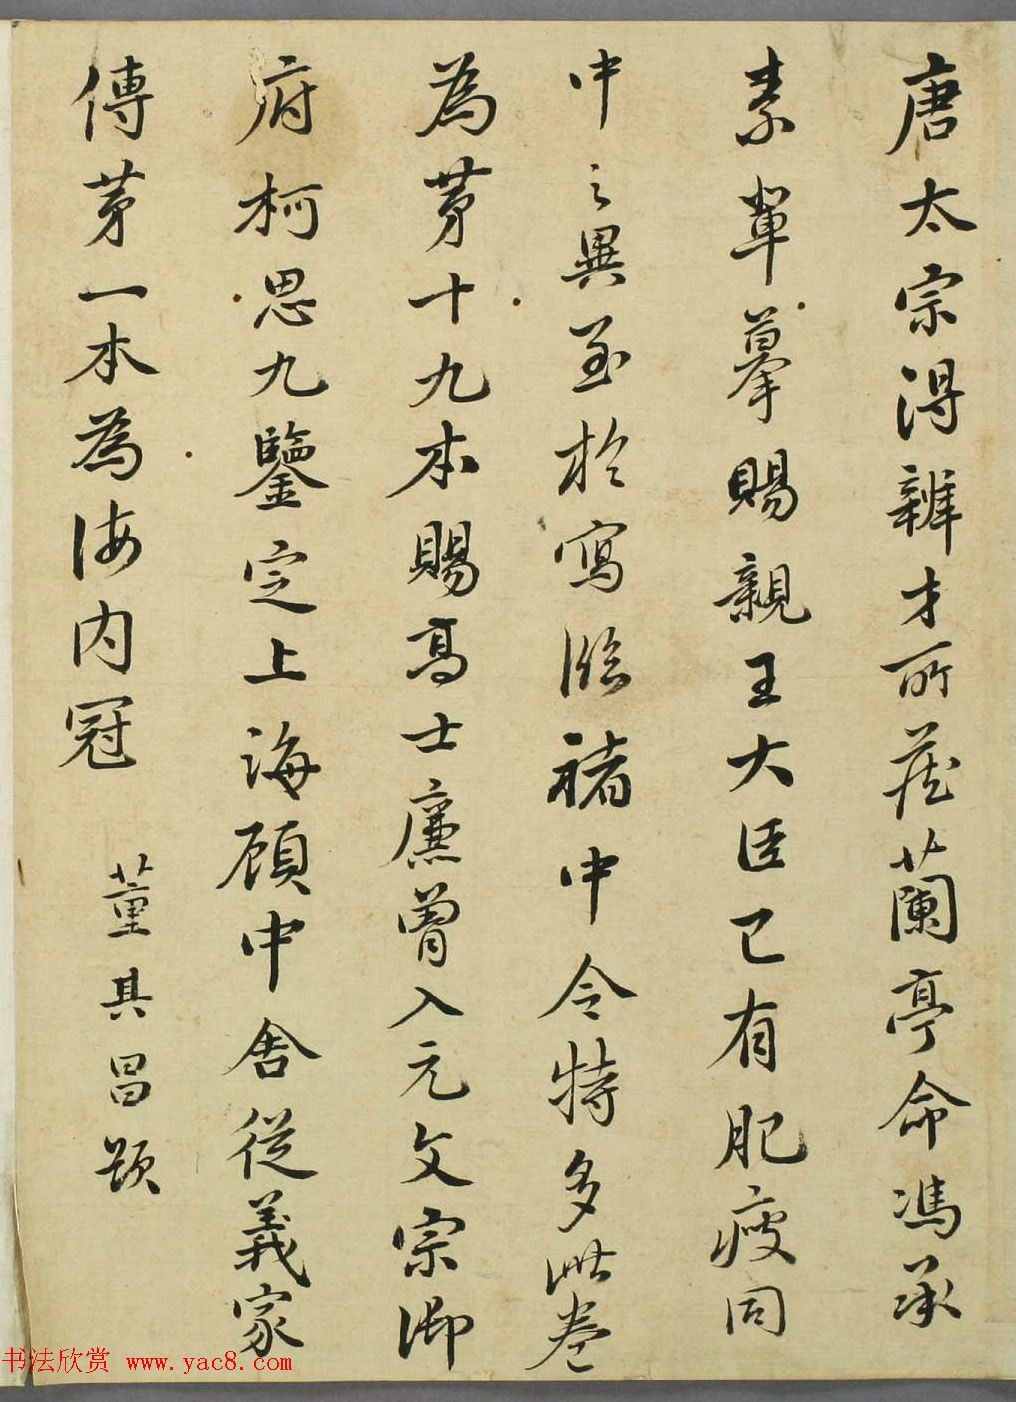 唐太宗得辨才所藏蘭亭命馮承
素輩摹賜親王大臣已有肥瘦同
中之異至於寫臨褚中令特多此卷
為茅十九本賜高士廉曾入元文宗御
府柯思九鑒定上海顧中舍從義家
傳茅一本為海内冠
董其昌題
书法欣赏 www.yac8.com